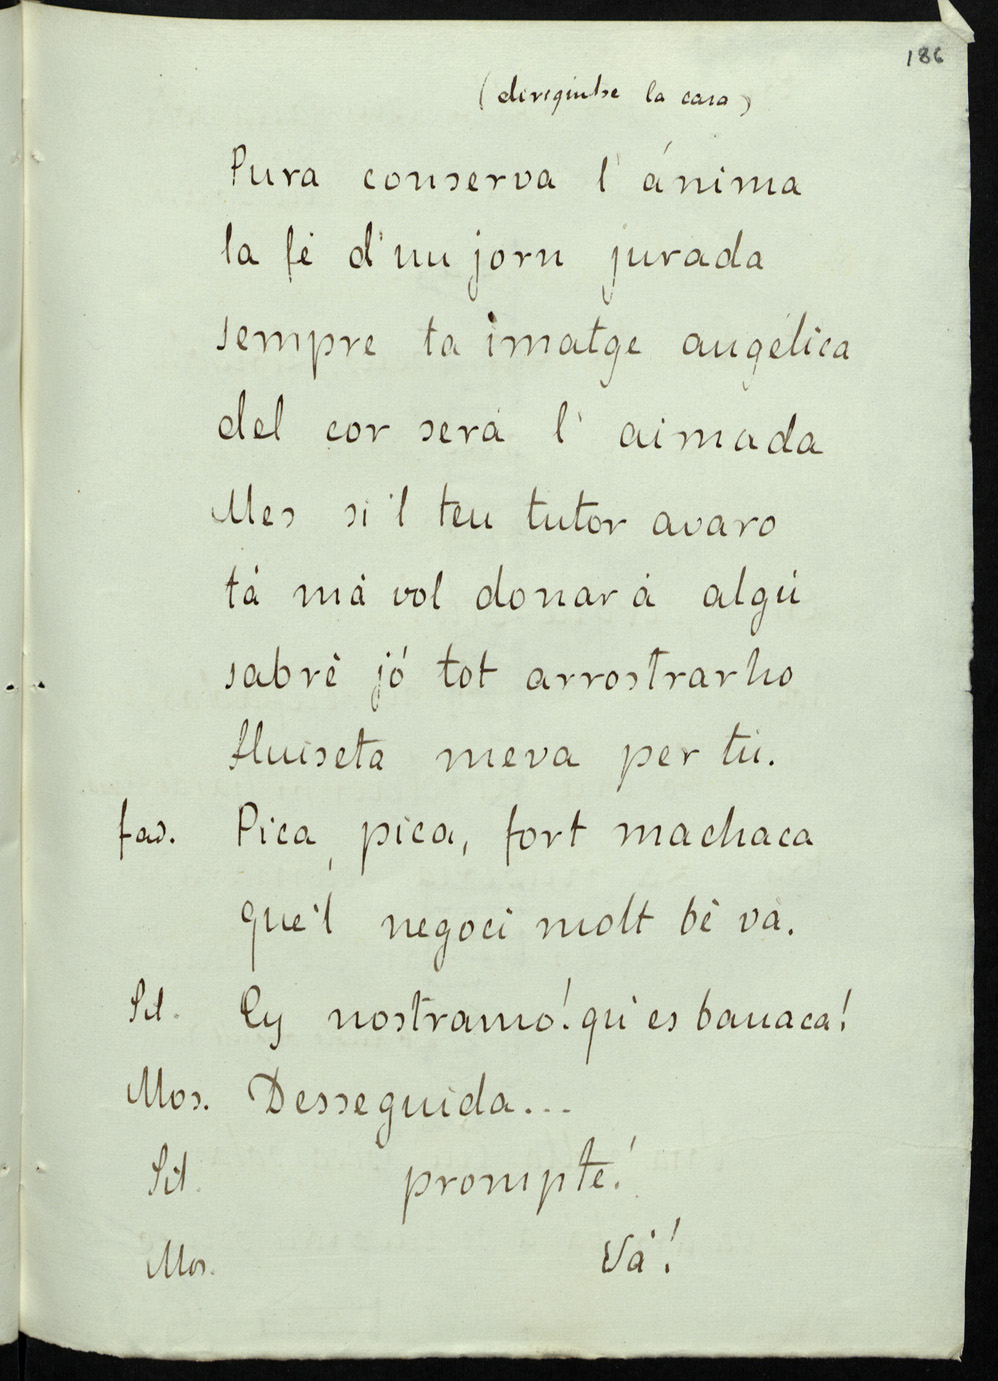 186
(dirigintse la casa)
Pura conserva l' ánima
la fé d'un jorn jurada
sempre ta imatge angélica
del cor será l' aimada
Mes si 'l teu tutor avaro
tá má vol donar á algú
sabré jó tot arrostrarho
Lluiseta meva per tú.
fad. Pica, pica, fort machaca
que'l negoci molt bé va.
Sil. Ey nostramo! qui es bauaca!
Mos. Desseguida...
Sil. prompte!
Mos. Vá!